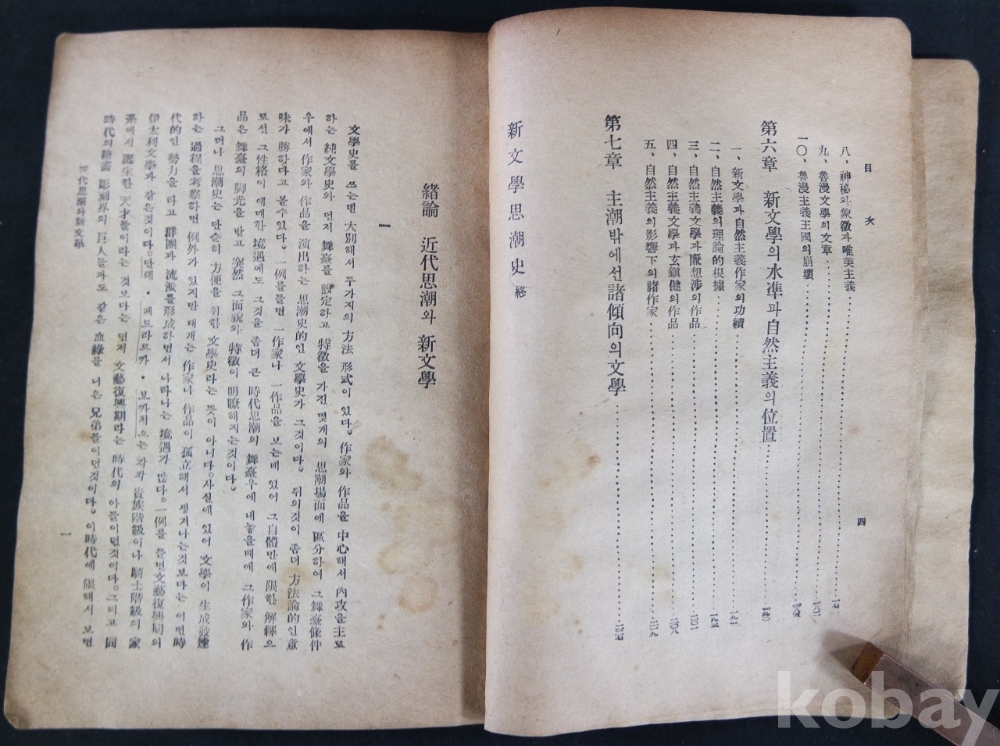 目次
四
八、神秘와 象徵과 唯美主義
九、魯漫文學의 文章
一〇、魯漫主義王國의 崩壞
第六章 新文學의 水準과 自然主義의 位置
一、新文學과 自然主義作家의 功績
二、自然主義의 理論的 根據
三、自然主義文學과 廉想涉의 作品
四、自然主義文學과 玄鎭健의 作品
五、自然主義의 影響下의 諸作家
第七章 主潮밖에선 諸傾向의 文學
新文學思潮史 終
緖論 近代思潮와 新文學
一
文學史를 쓰는덴 大別해서 두가지의 方法 形式이 있다. 作家와 作品을 中心해서 內攻을 主로
하는 純文學史와 먼저 舞臺를 設定하고 特徵을 가진 몇개의 思潮場面에 區分하여 그 舞臺條件
우에서 作家와 作品을 演出하는 思潮史的인 文學史가 그것이다. 뒤의것이 좀더 方法論的인 意
味가 勝하다고 볼수있다. 一例를들면 一作家나 一作品을 보는데 있어 그 自體만에 限한 解釋으
로선 그 性格이 애매한 境遇에도 그것을 좀더 큰 時代思潮의 舞臺우에 내놓을때에 그 作家와 作
品은 舞臺의 脚光을 받고 突然 그 面貌와 特徵이 明瞭해지는것이다.
그러나 思潮史는 단순히 方便을 위한 文學史라는 뜻이 아니다. 사실에 있어 文學이 生成發達
하는 過程을 考察하면 例外가 있지만 대개는 作家나 作品이 孤立해서 생겨나는것보다는 어떤時
代的인 勢力을 타고 群團과 流派를 形成하면서 나타나는 境遇가 많다. 一例를 들면 文藝復興期의
伊太利文學과 같은것이다. 단테・페트라르카・보카치오는 각각 貴族階級이나 騎士階級의 家
系에서 誕生한 天才들이라는 것보다는 먼저 文藝復興期라는 時代의 아들이던것이다. 그리고 同
時代의 繪畫 彫刻界의 巨人들과도 같은 血緣을 나은 兄弟들이던것이다. 이時代에 限해서 보면
近代思潮와 新文學
一
kobay